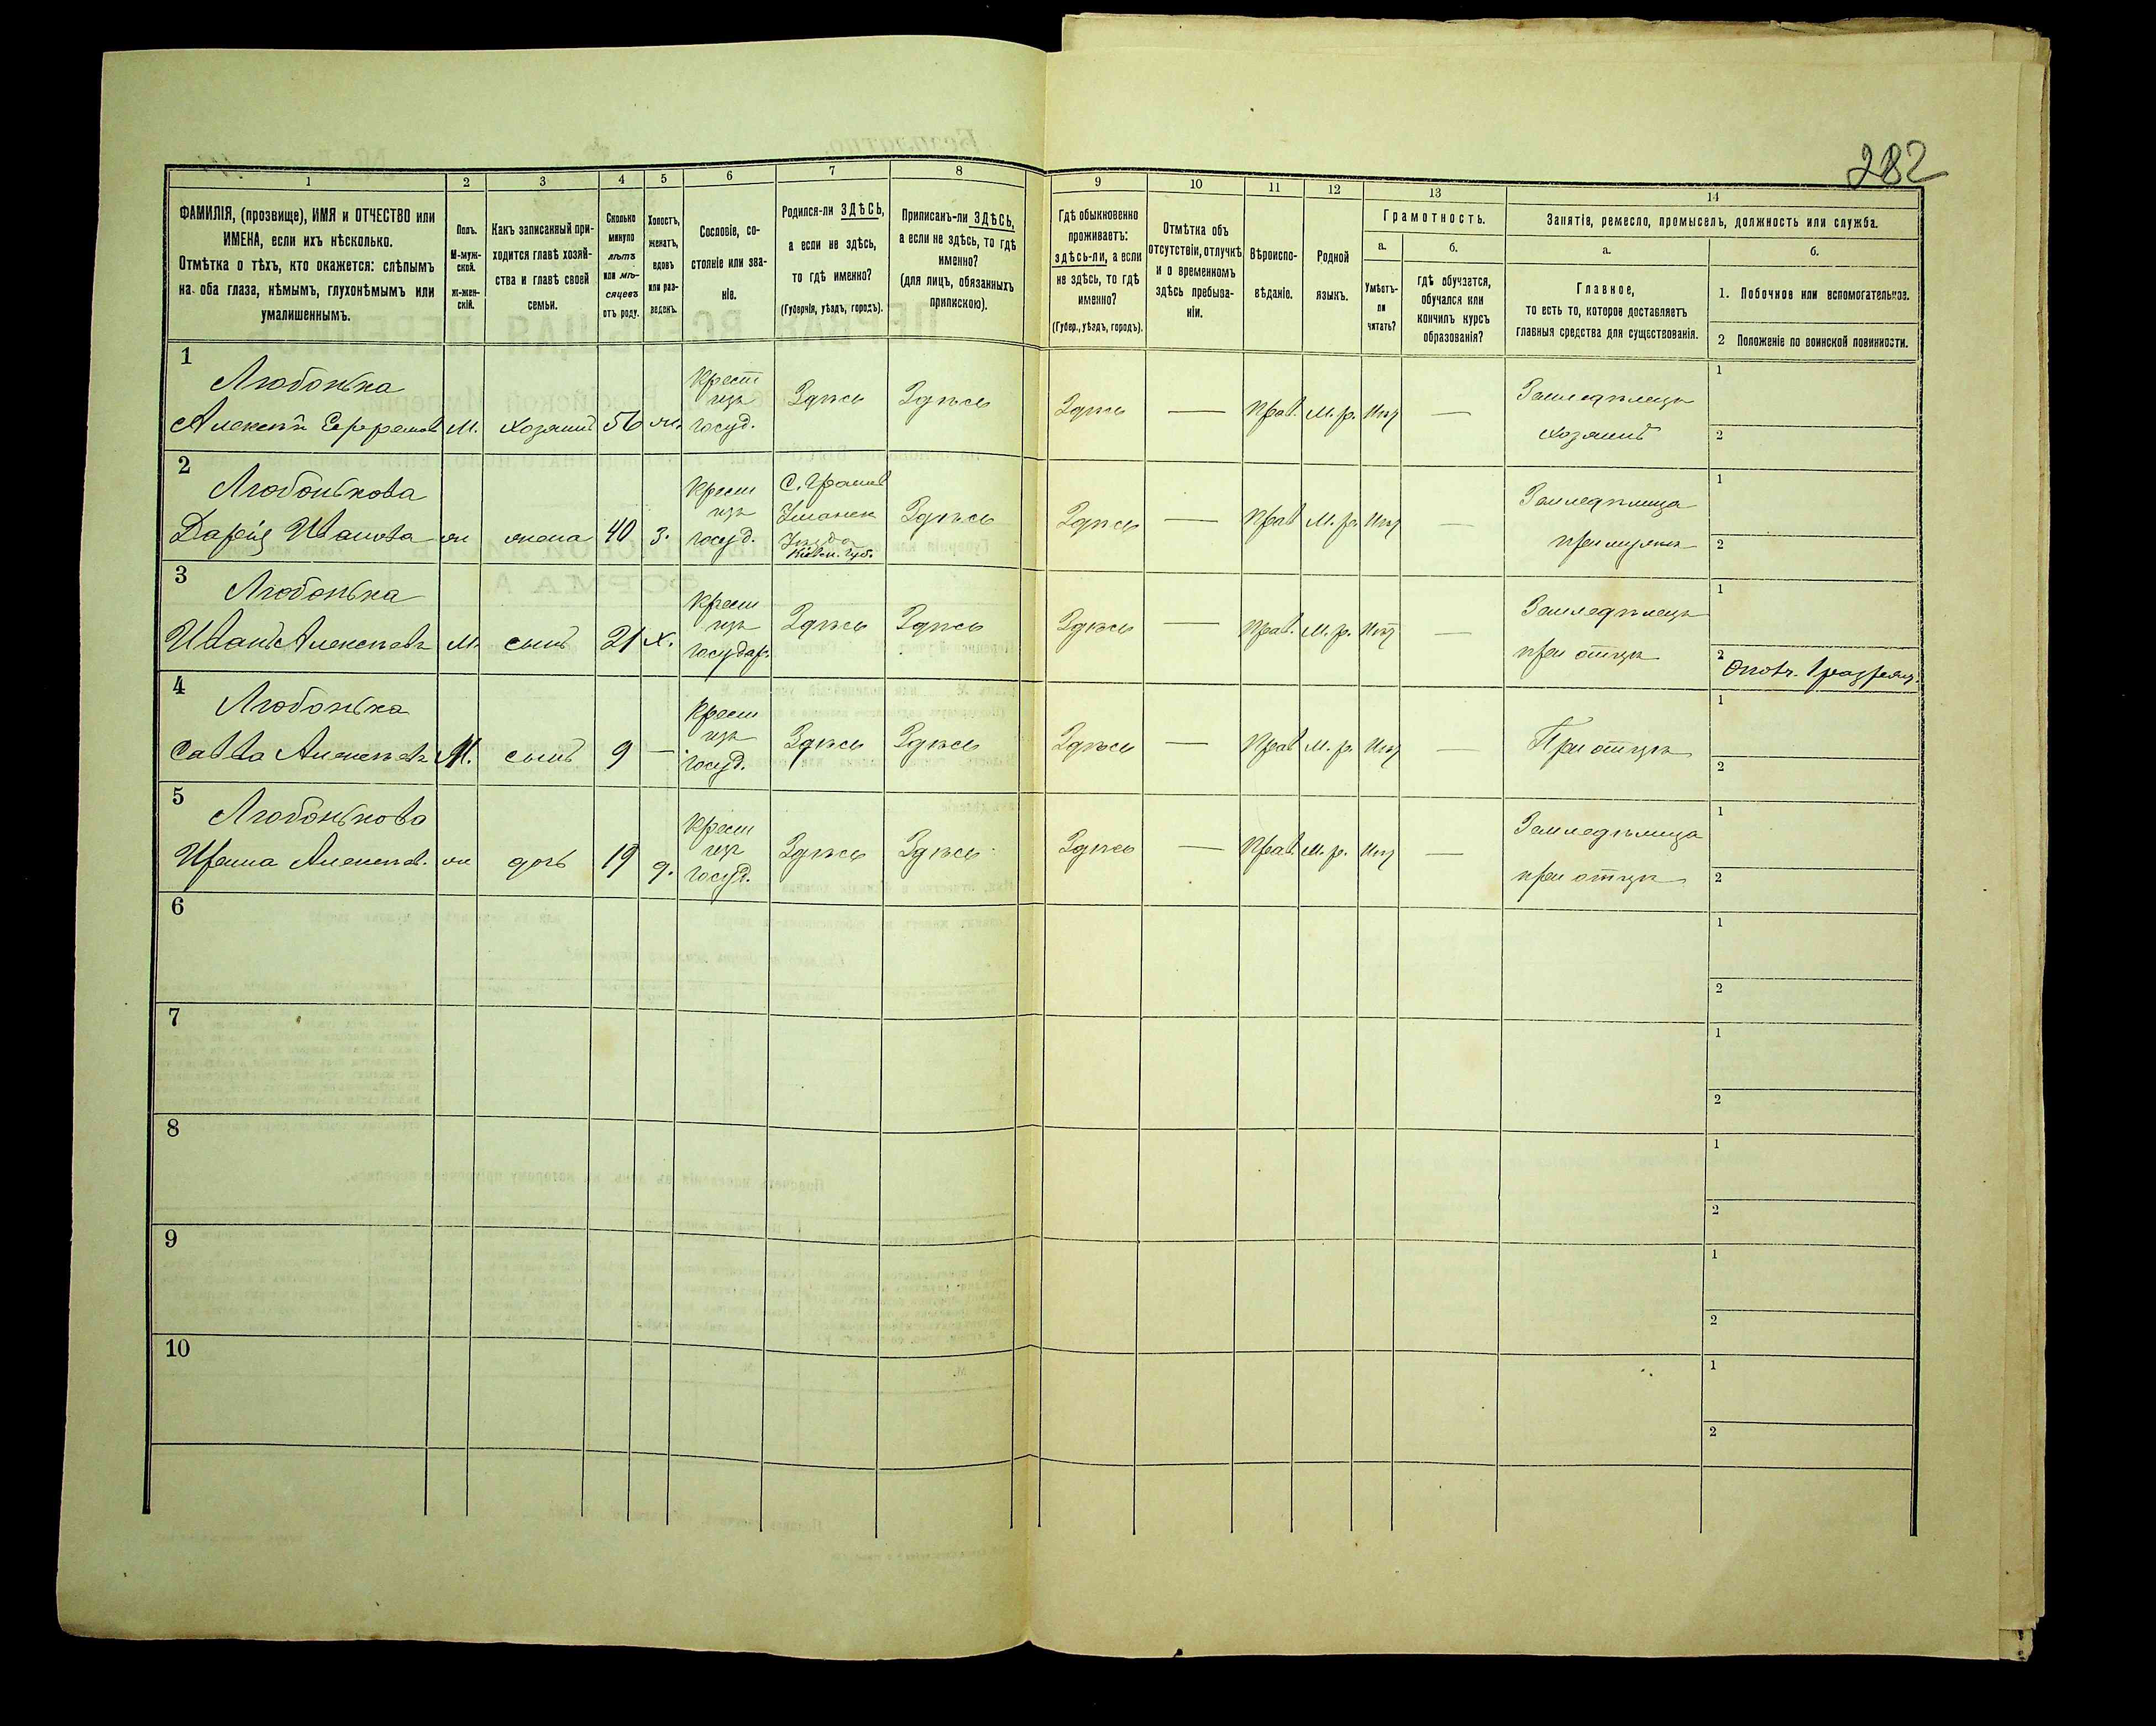 282
1 2 3 4 5 6 7 8 9 10 11 12 13 14
ФАМИЛІЯ, (прозвище), ИМЯ и ОТЧЕСТВО или
ИМЕНА, если ихъ нѣсколько.
Отмѣтка о тѣхъ, кто окажется: слѣпымъ
на оба глаза, нѣмымъ, глухонѣмымъ или
умалишеннымъ.
Полъ.
М-муж-
ской.
ж-жен-
скій.
Какъ записанный при-
ходится главѣ хозяй-
ства и главѣ своей
семьи.
Сколько
минуло
лѣтъ
или мѣ-
сяцевъ
отъ роду.
Холостъ,
женатъ,
вдовъ
или раз-
веденъ.
Сословіе, со-
стояніе или зва-
ніе.
Родился-ли ЗДѢСЬ,
а если не здѣсь,
то гдѣ именно?
(Губернія, уѣздъ, городъ).
Приписанъ-ли ЗДѢСЬ,
а если не здѣсь, то гдѣ
именно?
(для лицъ, обязанныхъ
припискою).
Гдѣ обыкновенно
проживаетъ:
здѣсь-ли, а если
не здѣсь, то гдѣ
именно?
(Губер., уѣздъ, городъ).
Отмѣтка объ
отсутствіи, отлучкѣ
и о временномъ
здѣсь пребыва-
ніи.
Вѣроиспо-
вѣданіе.
Родной
языкъ.
Грамотность.
а.
Умѣетъ-
ли
читать?
б.
гдѣ обучается,
обучался или
кончилъ курсъ
образованія?
Занятія, ремесло, промыселъ, должность или служба.
а.
Главное,
то есть то, которое доставляетъ
главныя средства для существованія.
б.
1. Побочное или вспомогательное.
2 Положеніе по воинской повинности.
1
Любонька
Алексѣй Ефремовъ М. хозяинъ 56 ж.
Крест
изъ
госуд.
Здѣсь Здѣсь Здѣсь — Прав. М. р. Нѣт —
Земледѣлецъ
хозяинъ
1
2
2
Любонькова
Дарія Иванова ж жена 40 з.
Крест
изъ
госуд.
Уманск
Уѣзда
Кіевск. Губ.
Здѣсь Здѣсь — Прав М. р. Нѣт —
Земледѣлица
при мужѣ
1
2
3
Любонька
Иванъ Алексѣевъ М. сынъ 21 х.
Крест
изъ
государ.
Здѣсь Здѣсь Здѣсь — Прав. М. р. Нѣт —
Земледѣлецъ
при отцѣ
1
2 Ополч. 1 разряд.
4
Любонька
Савва Алексѣевъ М. сынъ 9 —
Крест
изъ
госуд.
Здѣсь Здѣсь Здѣсь — Прав М. р. Нѣт —
При отцѣ
1
2
5
Любонькова
Ирина Алексѣев. ж дочь 19 д.
Крест
изъ
госуд.
Здѣсь Здѣсь Здѣсь — Прав. М. р. Нѣт —
Земледѣлица
при отцѣ
1
2
6
1
2
7
1
2
8
1
2
9
1
2
10
1
2